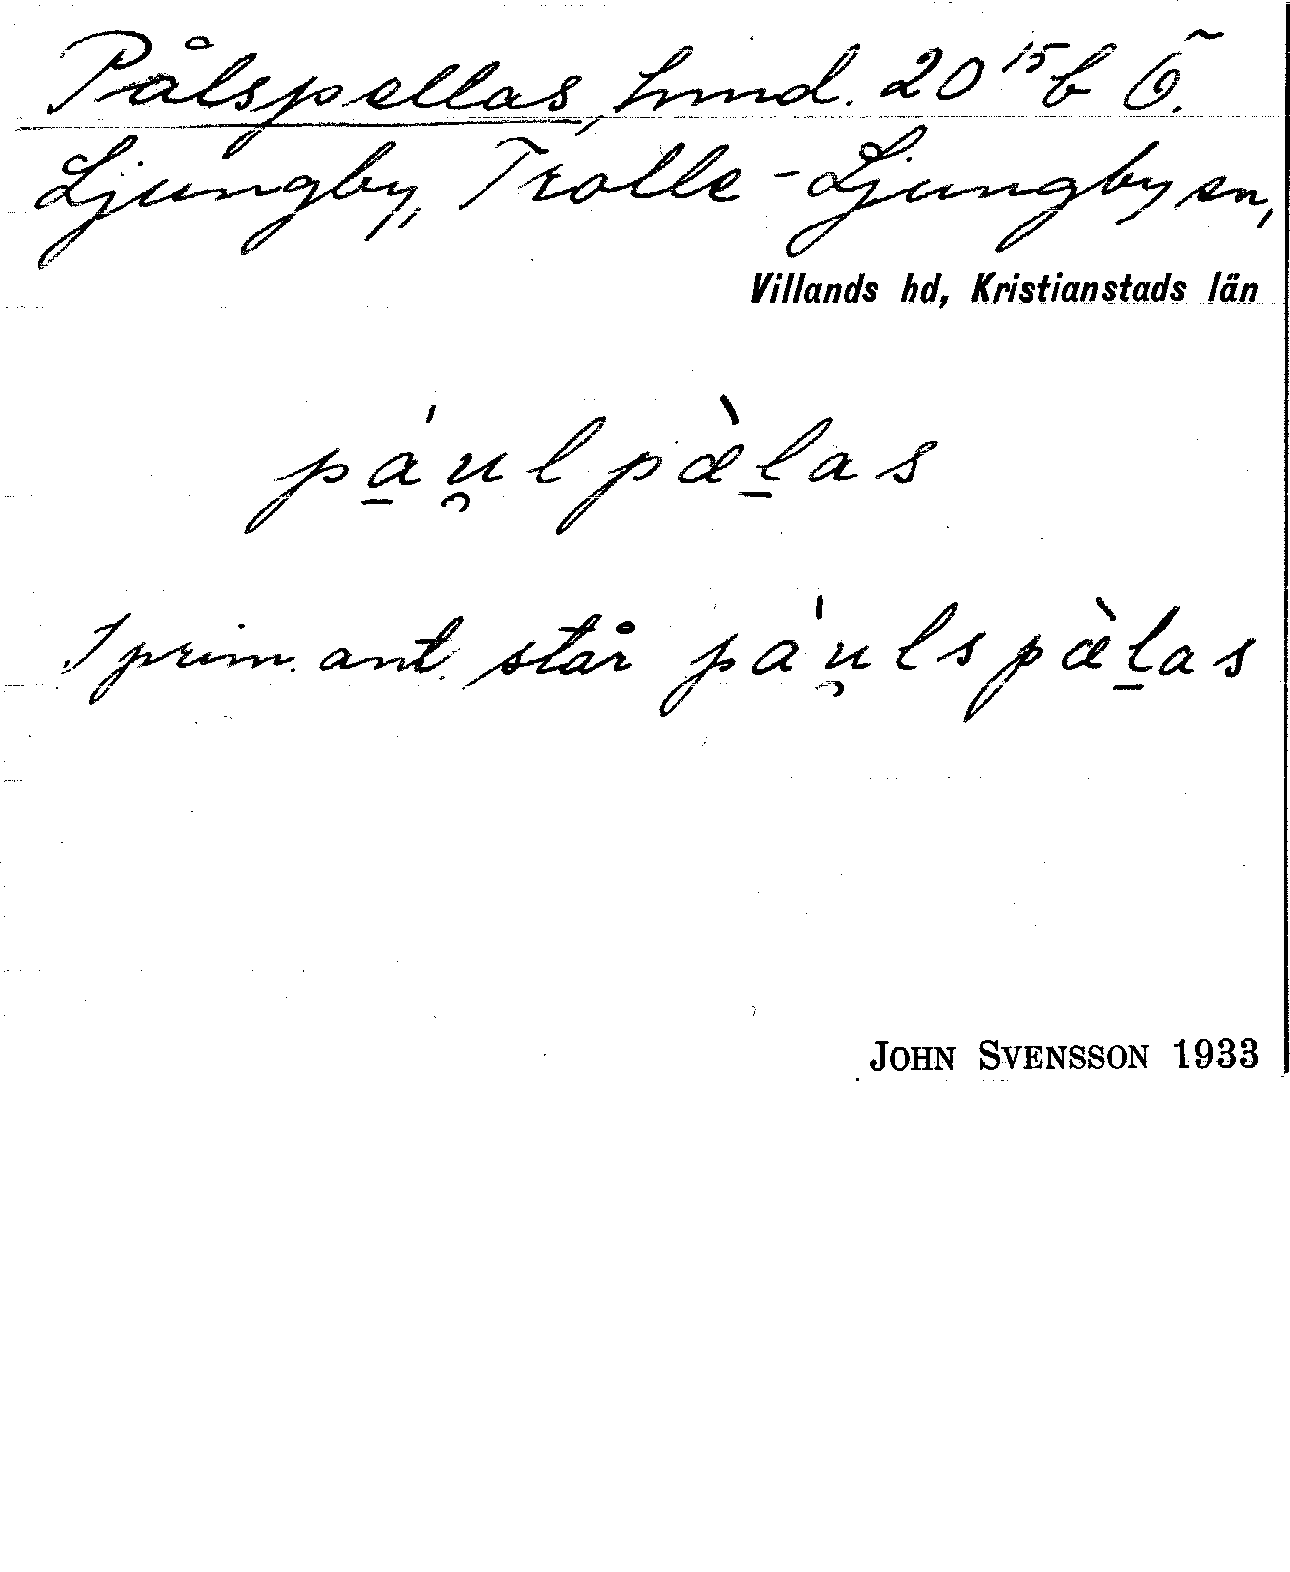 Pålspellas, hmd. 20 15 b Ö.
Ljungby, Trolle-Ljungby sn,
Villands hd, Kristianstads län
pa̱´u̯lpæ̀ḻas
I prim. ant. står pa´u̯lspæ̀ḻas
JOHN SVENSSON 1933